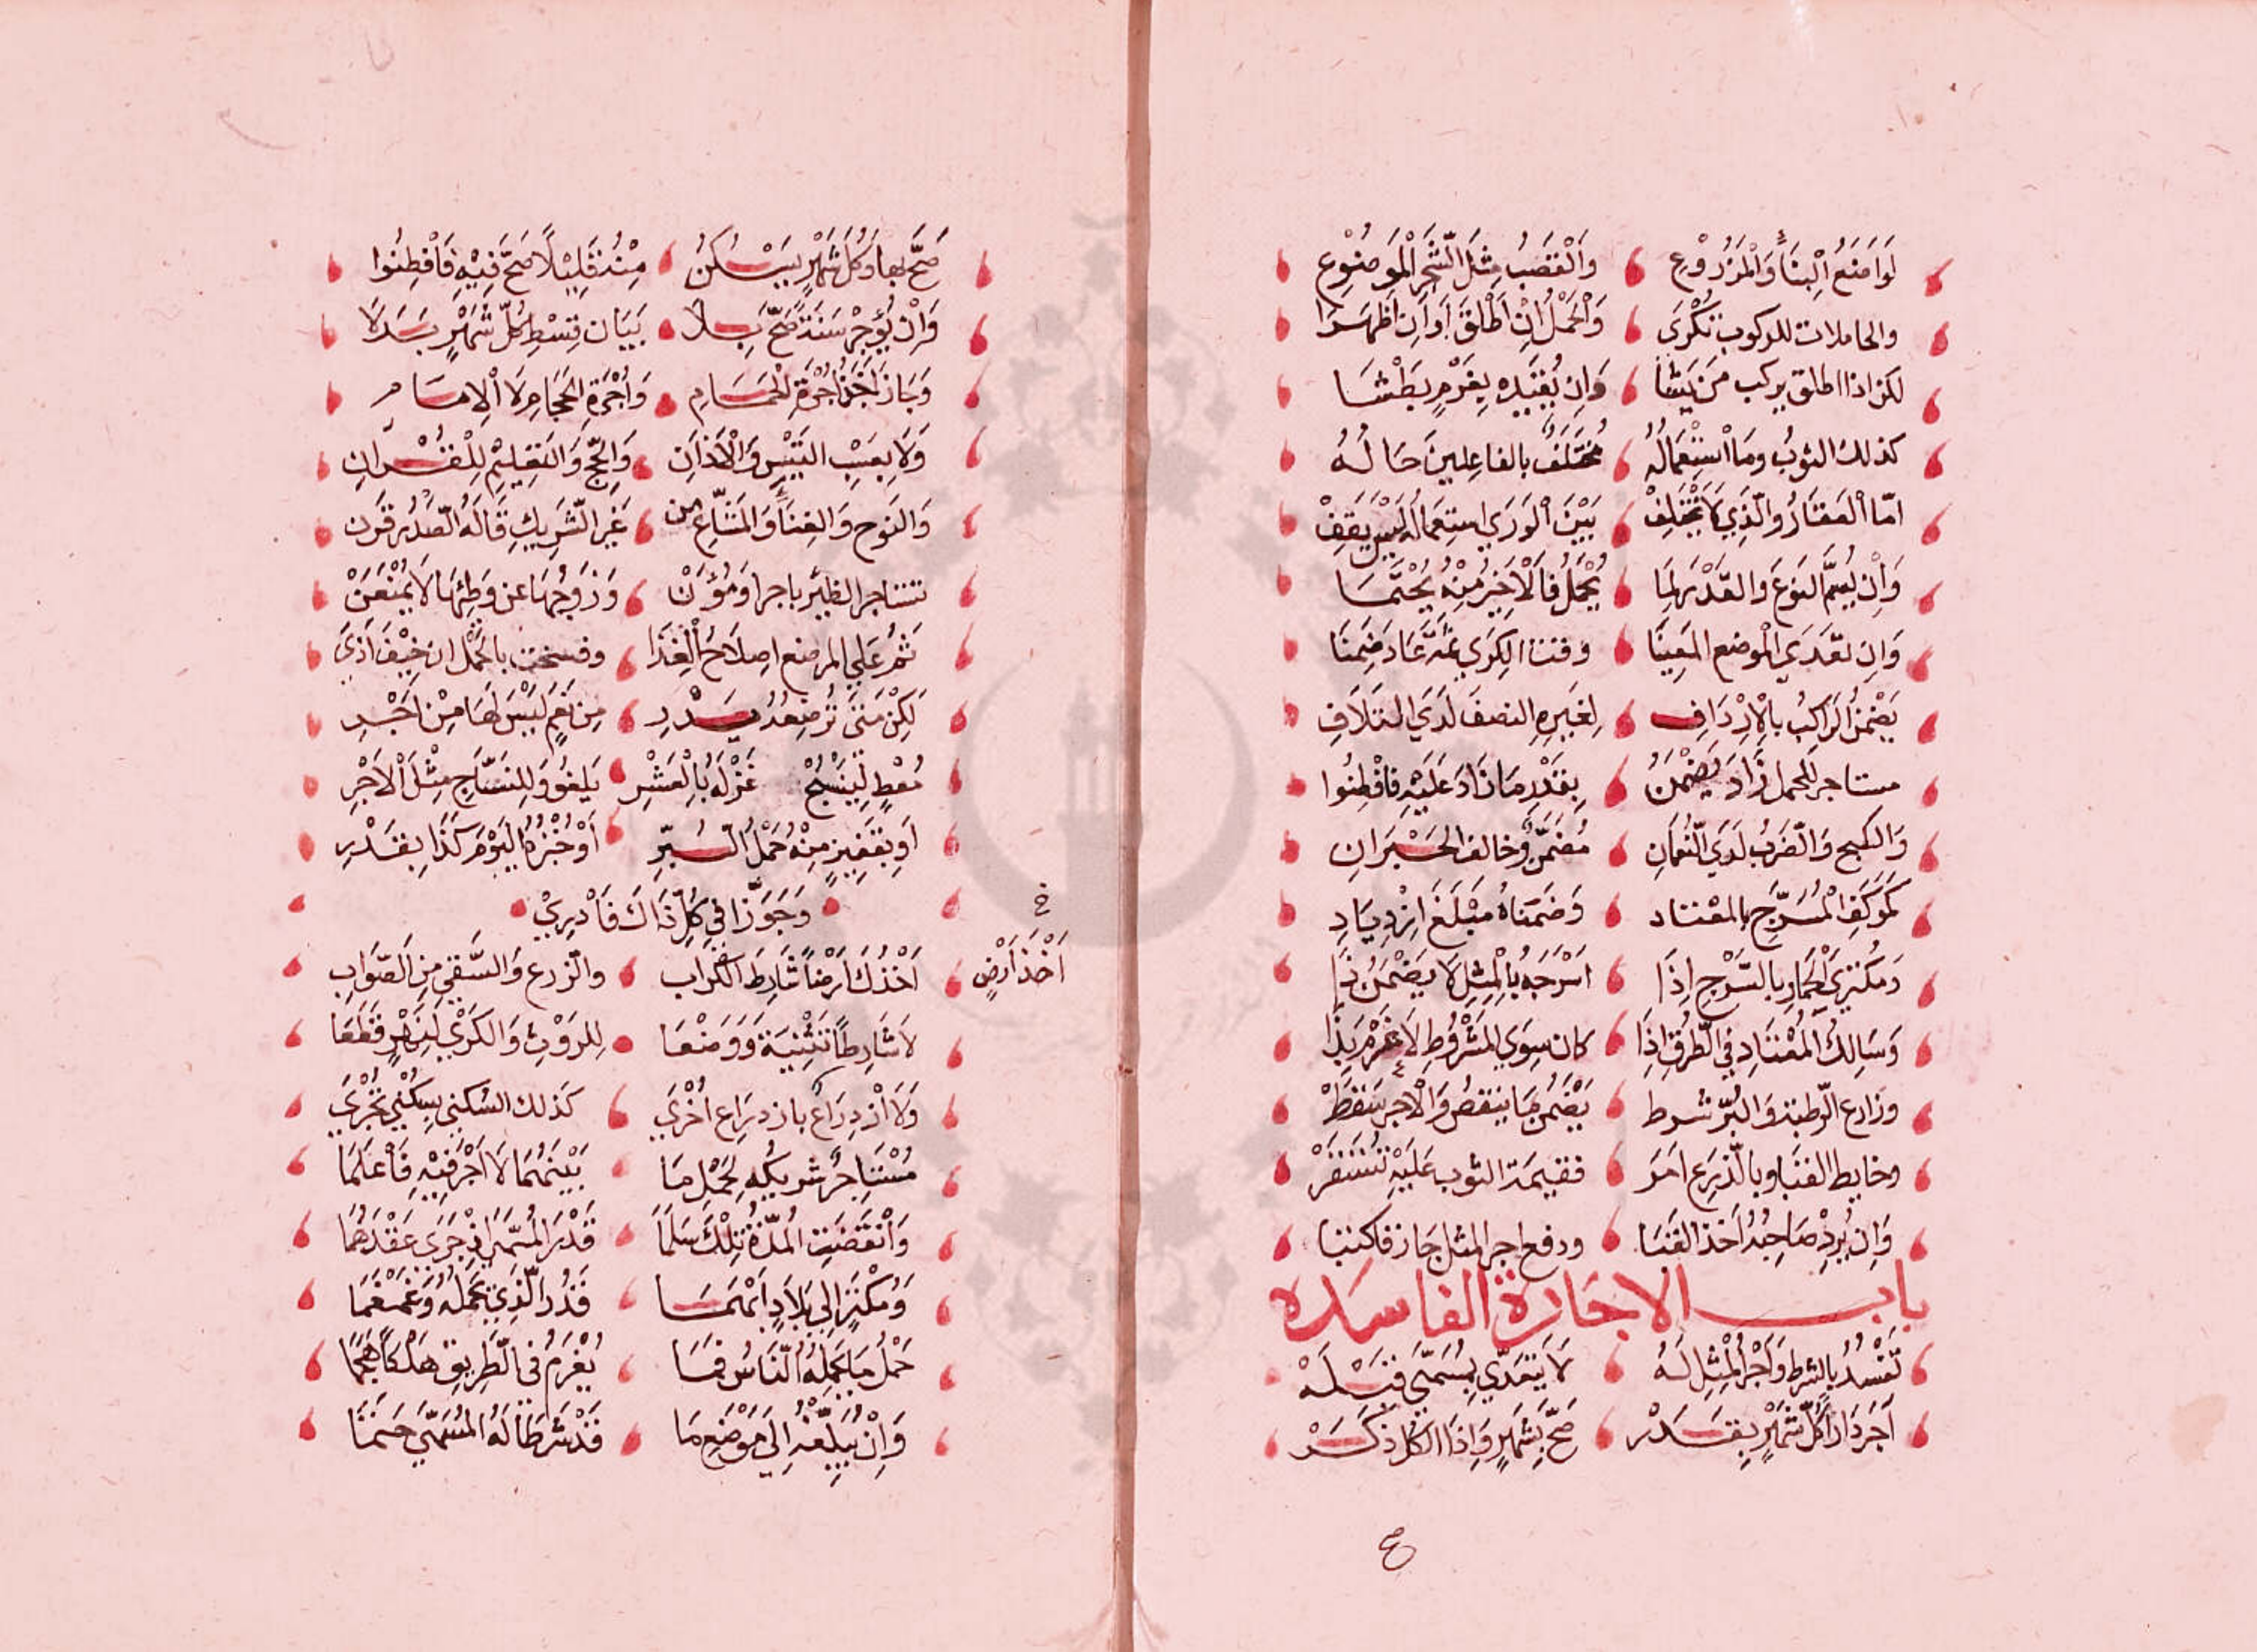 لَوَاضِعُ الْبِنَاءِ وَالْمَزْرُوْعِ وَالْقَصَبُ مِثْلَ الشَّجَرِ الْمَوضُوْعِ
والحاملات للركوب تُكْرَى وَالْحَمْلُ اِنْ اَطْلَقَ أَوْ اَن اَظهَرَا
لكن اذا اطلق يركب مَن يَشَا وَاِن يُقَيِّده بِغَرْمٍ بَطْشَا
كذلك الثوبُ ومَا اسْتِعْمَالُهُ مُخْتَلِفٌ بالفاعِلينَ حَالُهُ
امّا الْعَقَارُ وَالَّذِي لَا يَخْتَلِفْ بَيْنَ الْوَرَي استِعمالُه لَيْسَ يَقِفْ
وَاِنْ يُسَمِّ النَوعَ وَالقَدْرَ لِمَا يُحْمَلُ فَالْاَخِيرُ مِنْهُ يُحْتَمَا
وَاِن تعَّدَي الْموضع المَعِينَا وقت الكِرَي ثمَّه عَادَ ضَمِنَا
يَضْمَنُ الرَاكِبُ بالْاِرْدَافِ لِغَيرِهِ النصفَ لَدَي التَلَافِ
مستاجر للحمل زَادَ يَضْمَنُ بِقَدْرِ مَا زَادَ عَلَيْهِ فَافْطِنُوا
وَالكبح وَالضَربُ لَدَي النُّعْمَانِ مُضَمَّنٌ وخالف الحَبْرَانِ
كَمُوكَفِ الْمُسَرَّجِ بالمعْتاد وَضَمَّنَاهُ مَبْلَغَ ازْدِيَادِ
وَمُكْتِرَي الْحِمَارِ بالسَّرْجِ اِذَا اَسْرَجَهُ بِالْمِثِلِ لَا يَضْمَنُ ذَا
وَسَالِكُ الْمُعْتَادِ فِي الطُّرْقِ اِذَا كان سِوَي المَشْرُوطِ لَا غُرْمَ بِذَا
وزارع الرّطبة وَالبُرّ شرط يَضْمَنُ مَا ينقصُ وَالْاجر سَقَطْ
وخايط القبَا وبالدِّرعِ امَرَ فقيمة الثوب عَلَيْهِ تُسْتَقَرْ
وَاِن يُرِدْ صَاحِبُهُ اَخذ القَبَا ودفع اجر المثل جَاز فاكتبا
باب الاجَارة الفاسَده
تَفْسُدُ بالشرط وَأَجْرُ الْمِثِلِ لَهُ لَا يَتَعَدّي بِمُسَمَّى قبْلَهْ
آجَرَ دَارًا كُلَّ شَهْرٍ بِقَدَرْ صَحَّ بِشَهرٍ وَاِذَا الكُلُّ ذَكَرْ
ع
صَحَّ بِهَا وَكُلّ شَهْرٍ يَسْكُنُ مِنْهُ قَلِيْلًا صَحَّ فِيْهِ فَافْطِنُوا
وَاِنْ يُؤَجِرْ سَنَةً صَحَّ بِلَا بَيَان قِسْطِ كُلِّ شَهْرٍ بَدَلَا
وَجَازَ اَخْذُ اُجْرَةِ الْحَمَامِ وَاُجْرَةِ الحَجَامِ لَا الْاِمَامِ
وَلَا بِعَسْبِ التَيْسِ وَالْاَذَانِ وَالحَجِّ وَالتَعْلِيْمِ لِلْقُرْآنِ
وَالنَوح وَالغِنَا وَالمَشَاعِ مِن غَيرِ الشَرِيكِ قَالَهُ الصَّدْرُ قَرَن
تستاجر الظير باجر اومُؤَنْ وَزَوجُهَا عن وَطئِهَا لَا يُمْنَعَنْ
ثُمَّ عَلي المرضع اِصلَاحُ الْغِذَا وفسخت بالحَمْل ان خِيْفَ اَذَي
لَكِنْ مَتَى تُرْضِعُهُ بِدَرِّ مِنْ نَعَمٍ لَيْسَ لَهَا مِنْ اَجْرِ
مُعْطٍ لِيَنْسُجْ غَزْلَهُ بِالْعَشْرِ يَلغُو وَللِنسَّاجِ مِثْلَ الْاَجْرِ
اَو بِقَفِيزٍ مِنْهُ حَمْلُ البُرِّ اَوْ خُبْزُهُ الْيَوْمَ كَذَا بِقَدْرِ
وَجَوَّزَا فِي كُلِّ ذَاكَ فَادْرِيْ
خ
اَخْذَ اَرْضٍ
اَخْذُكَ اَرْضًا شَارِطَ الكِرَاب وَالزرع وَالسَّقْي مِنَ الصَوَابِ
لَا شَارِطًا تَثْنِيَةً وَوَضْعَا لِلرَوْثِ وَالكَرْيَ لِنَهْرٍ قَطْعَا
وَلَا ازْدِرَاعٌ بازدِرَاع اُخْرَي كَذلك السُكني بِسُكْنَي تُجْرَي
مُسْتَاجِرٌ شريكه لِحَمْلِ مَا بَيْنَهُمَا لَا اَجْرَ فِيْهِ فَاعْلَمَا
وَانْقَضَتِ المُدَّةُ تِلْكَ سَلَّمَا قَدْرَ المُسَمَّى اِذْ جَرَى عَقْدُهُمَا
وَمُكْتَرٍ اِلي بِلَادٍ اَبْهَمَا قَدْرَ الَّذِي يَحْمِلُهُ وَعَمَّمَا
حَمْلُ مَا يَحْمِلهُ النَّاسُ فمَا يُغْرَمُ فِي الطَرِيقِ هلْكًا هَجَمَا
وَاِنْ يُبَلِّغْهُ اِلَى مَوْضِعِ مَا قَدْ شَرَطَا لَهُ المُسَمّي حَتْمَا